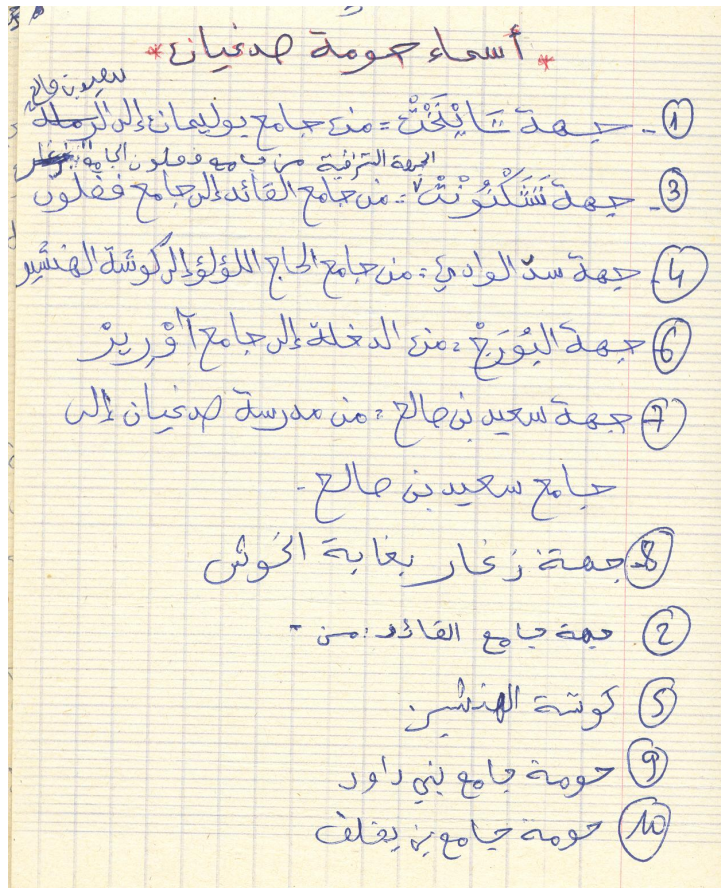 * أسماء حومة صدغيان *
سعيد بن صالح
① - جهة تَايَلْخَتْ = من جامع بوليمان إلى الرملة
الجهة الشرقية من جامع فغلون
③ - جهة تَشَكْنُونْتْ = من جامع القائد إلى جامع فغلون
④ - جهة سدّ الوادي = من جامع الحاج اللؤلؤ إلى كوشة الهنشير
⑥ جهة البُورَجْ = من الدخلة إلى جامع آوْريرْ
⑦ - جهة سعيد بن صالح = من مدرسة صدغيان إلى
جامع سعيد بن صالح -
⑧ - جهة زغار بغابة الحوش
② جهة جامع القائد : من -
⑤ كوشة الهنشير
⑨ حومة جامع بني داود
⑩ حومة جامع بن يغلف